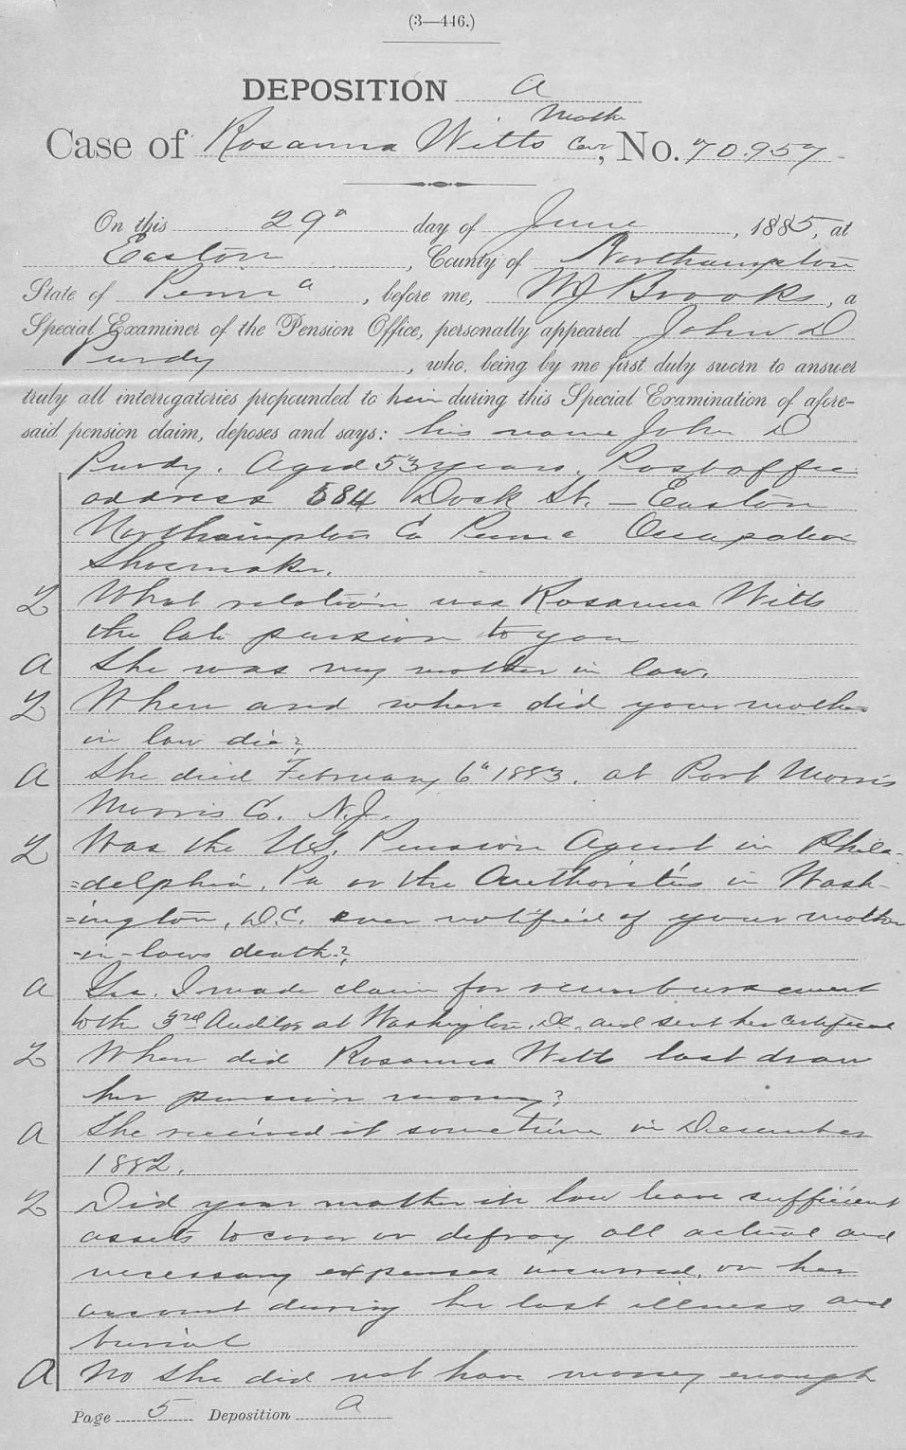 (3—446.)
DEPOSITION A
Case of Rosanna Witts Moth Cert, No. 70.957
On this 29" day of June, 1885, at
Easton, County of Northampton
State of Penn a, before me, W J Brooks, a
Special Examiner of the Pension Office, personally appeared John D
Purdy, who, being by me first duly sworn to answer
truly all interrogatories propounded to him during this Special Examination of afore-
said pension claim, deposes and says: his name John D
Purdy. Aged 53 years, Postoffice
address 584 St. — Easton
Northampton Co Penna Occupation
Shoemaker.
Q What relation was Rosanna Witts
the late pension to you
A She was my mother in law.
Q When and where did your mother
in law die?
A She died February 6" 1883. at Port Morris
Morris Co. N.J.
Q Was the U.S. Pension Agent in Phila-
=delphia, Pa or the Authorities in Wash-
=ington, D.C. ever notified of your mother
-in-laws death?
A Yes. I made claim for reimbursement
to the 3rd Auditor at Washington, DC, and sent her certificate
Q When did Rosanna Witts last draw
her pension money?
A She received it sometime in December
1882.
Q Did your mother in law leave sufficient
assets to cover or defray all actual and
necessary expenses incurred, on her
account during her last illness and
burial
A No she did not have money enough
Page 5 Deposition A